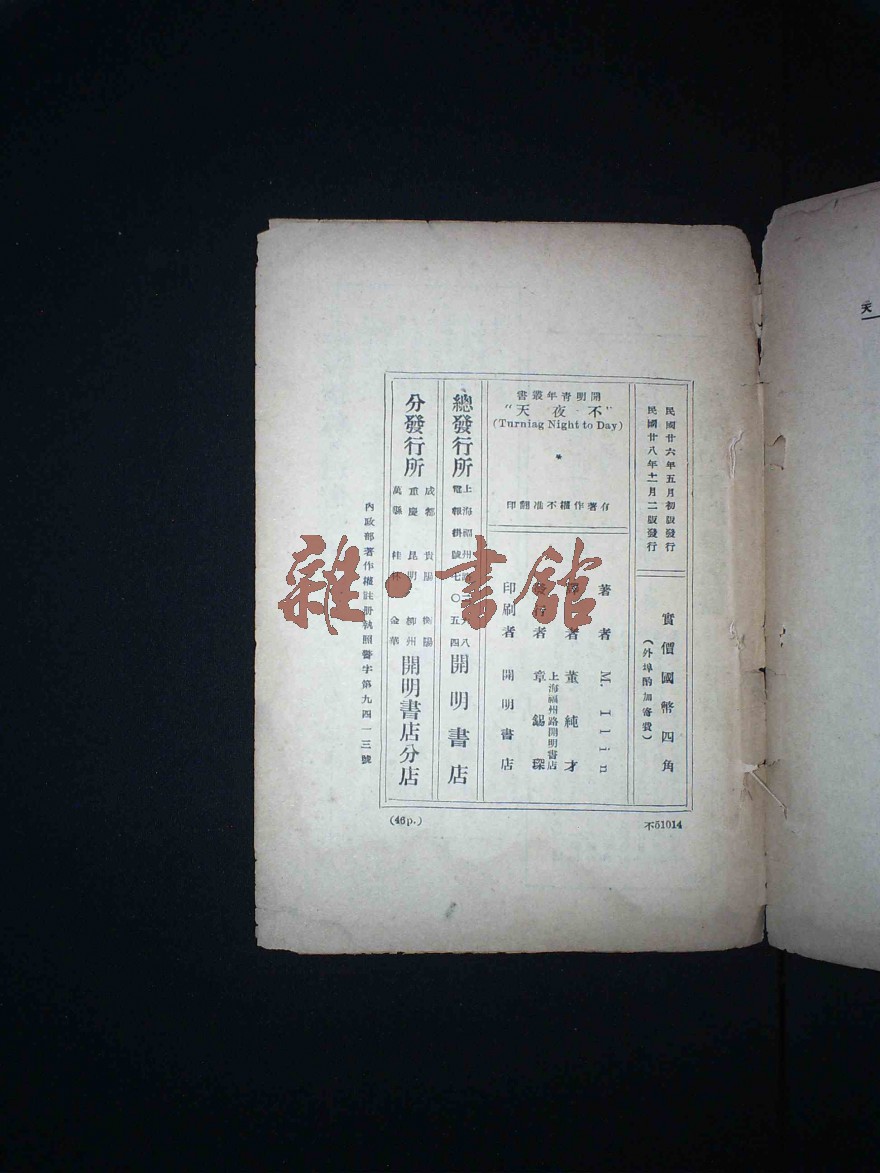 民國廿六年五月初版發行
民國廿八年十一月二版發行
實價國幣四角
(外埠酌加寄費)
開明青年叢書
"不夜天"
(Turniag Night to Day)
有著作權不准翻印
著者 M. Ilin
譯著 董純才
發行者 章錫琛
上海福州路開明書店
印刷者 開明書店
總發行所
上海福州路二六八
電報掛號七〇五四
開明書店
分發行所
成都 貴陽 衡陽
重慶 昆明 柳州
萬縣 桂林 金華
開明書店分店
內政部著作權註冊執照警字第九四一三號
(46p.)
不51014
雜·書館
天